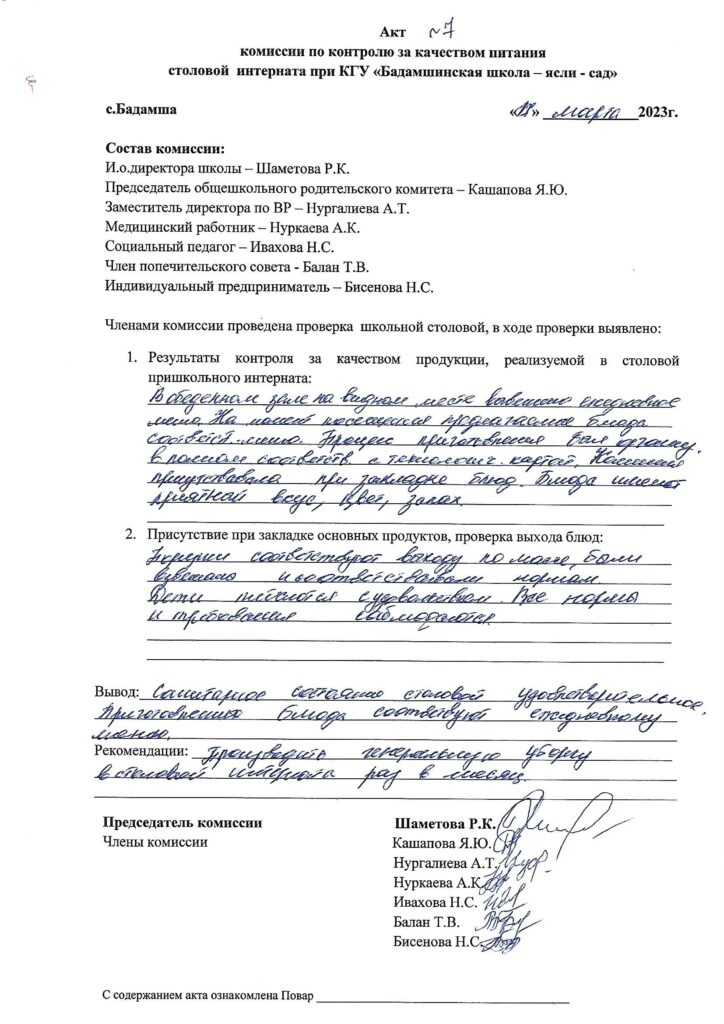 Акт №7
комиссии по контролю за качеством питания
столовой интерната при КГУ «Бадамшинская школа – ясли - сад»
с.Бадамша « » марта 2023г.
Состав комиссии:
И.о.директора школы – Шаметова Р.К.
Председатель общешкольного родительского комитета – Кашапова Я.Ю.
Заместитель директора по ВР – Нургалиева А.Т.
Медицинский работник – Нуркаева А.К.
Социальный педагог – Ивахова Н.С.
Член попечительского совета - Балан Т.В.
Индивидуальный предприниматель – Бисенова Н.С.
Членами комиссии проведена проверка школьной столовой, в ходе проверки выявлено:
1. Результаты контроля за качеством продукции, реализуемой в столовой
пришкольного интерната:
В обеденном зале на видном месте вывешено ежедневное
меню. На момент посещения предлагаемые блюда
соответст. меню. Процесс приготовления был организ.
в полном соответств. с технологич. картой. Комиссия
присутствовала при закладке блюд. Блюда имеют
приятный вкус, цвет, запах.
2. Присутствие при закладке основных продуктов, проверка выхода блюд:
Порции соответствуют выходу по массе, были
взвешаны и соответствовали нормам.
Дети питаются с удовольствием. Все нормы
и требования соблюдаются.
Вывод: Санитарное состояние столовой удовлетворительное.
Приготовленные блюда соотвствуют ежедневному
меню.
Рекомендации: Производить генеральную уборку
в столовой интерната раз в месяц.
Председатель комиссии Шаметова Р.К.
Члены комиссии Кашапова Я.Ю.
Нургалиева А.Т.
Нуркаева А.К.
Ивахова Н.С.
Балан Т.В.
Бисенова Н.С.
С содержанием акта ознакомлена Повар